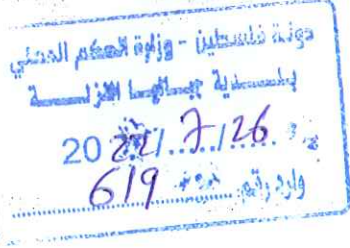 دولة فلسطين - وزارة الحكم المحلي
بلدية
2022/7/26
وارد رقم 619